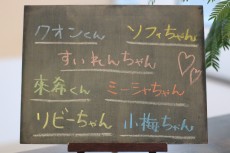 クオンくん ソフィちゃん
すいれんちゃん
來希くん ミーシャちゃん
リビーちゃん 小梅ちゃん